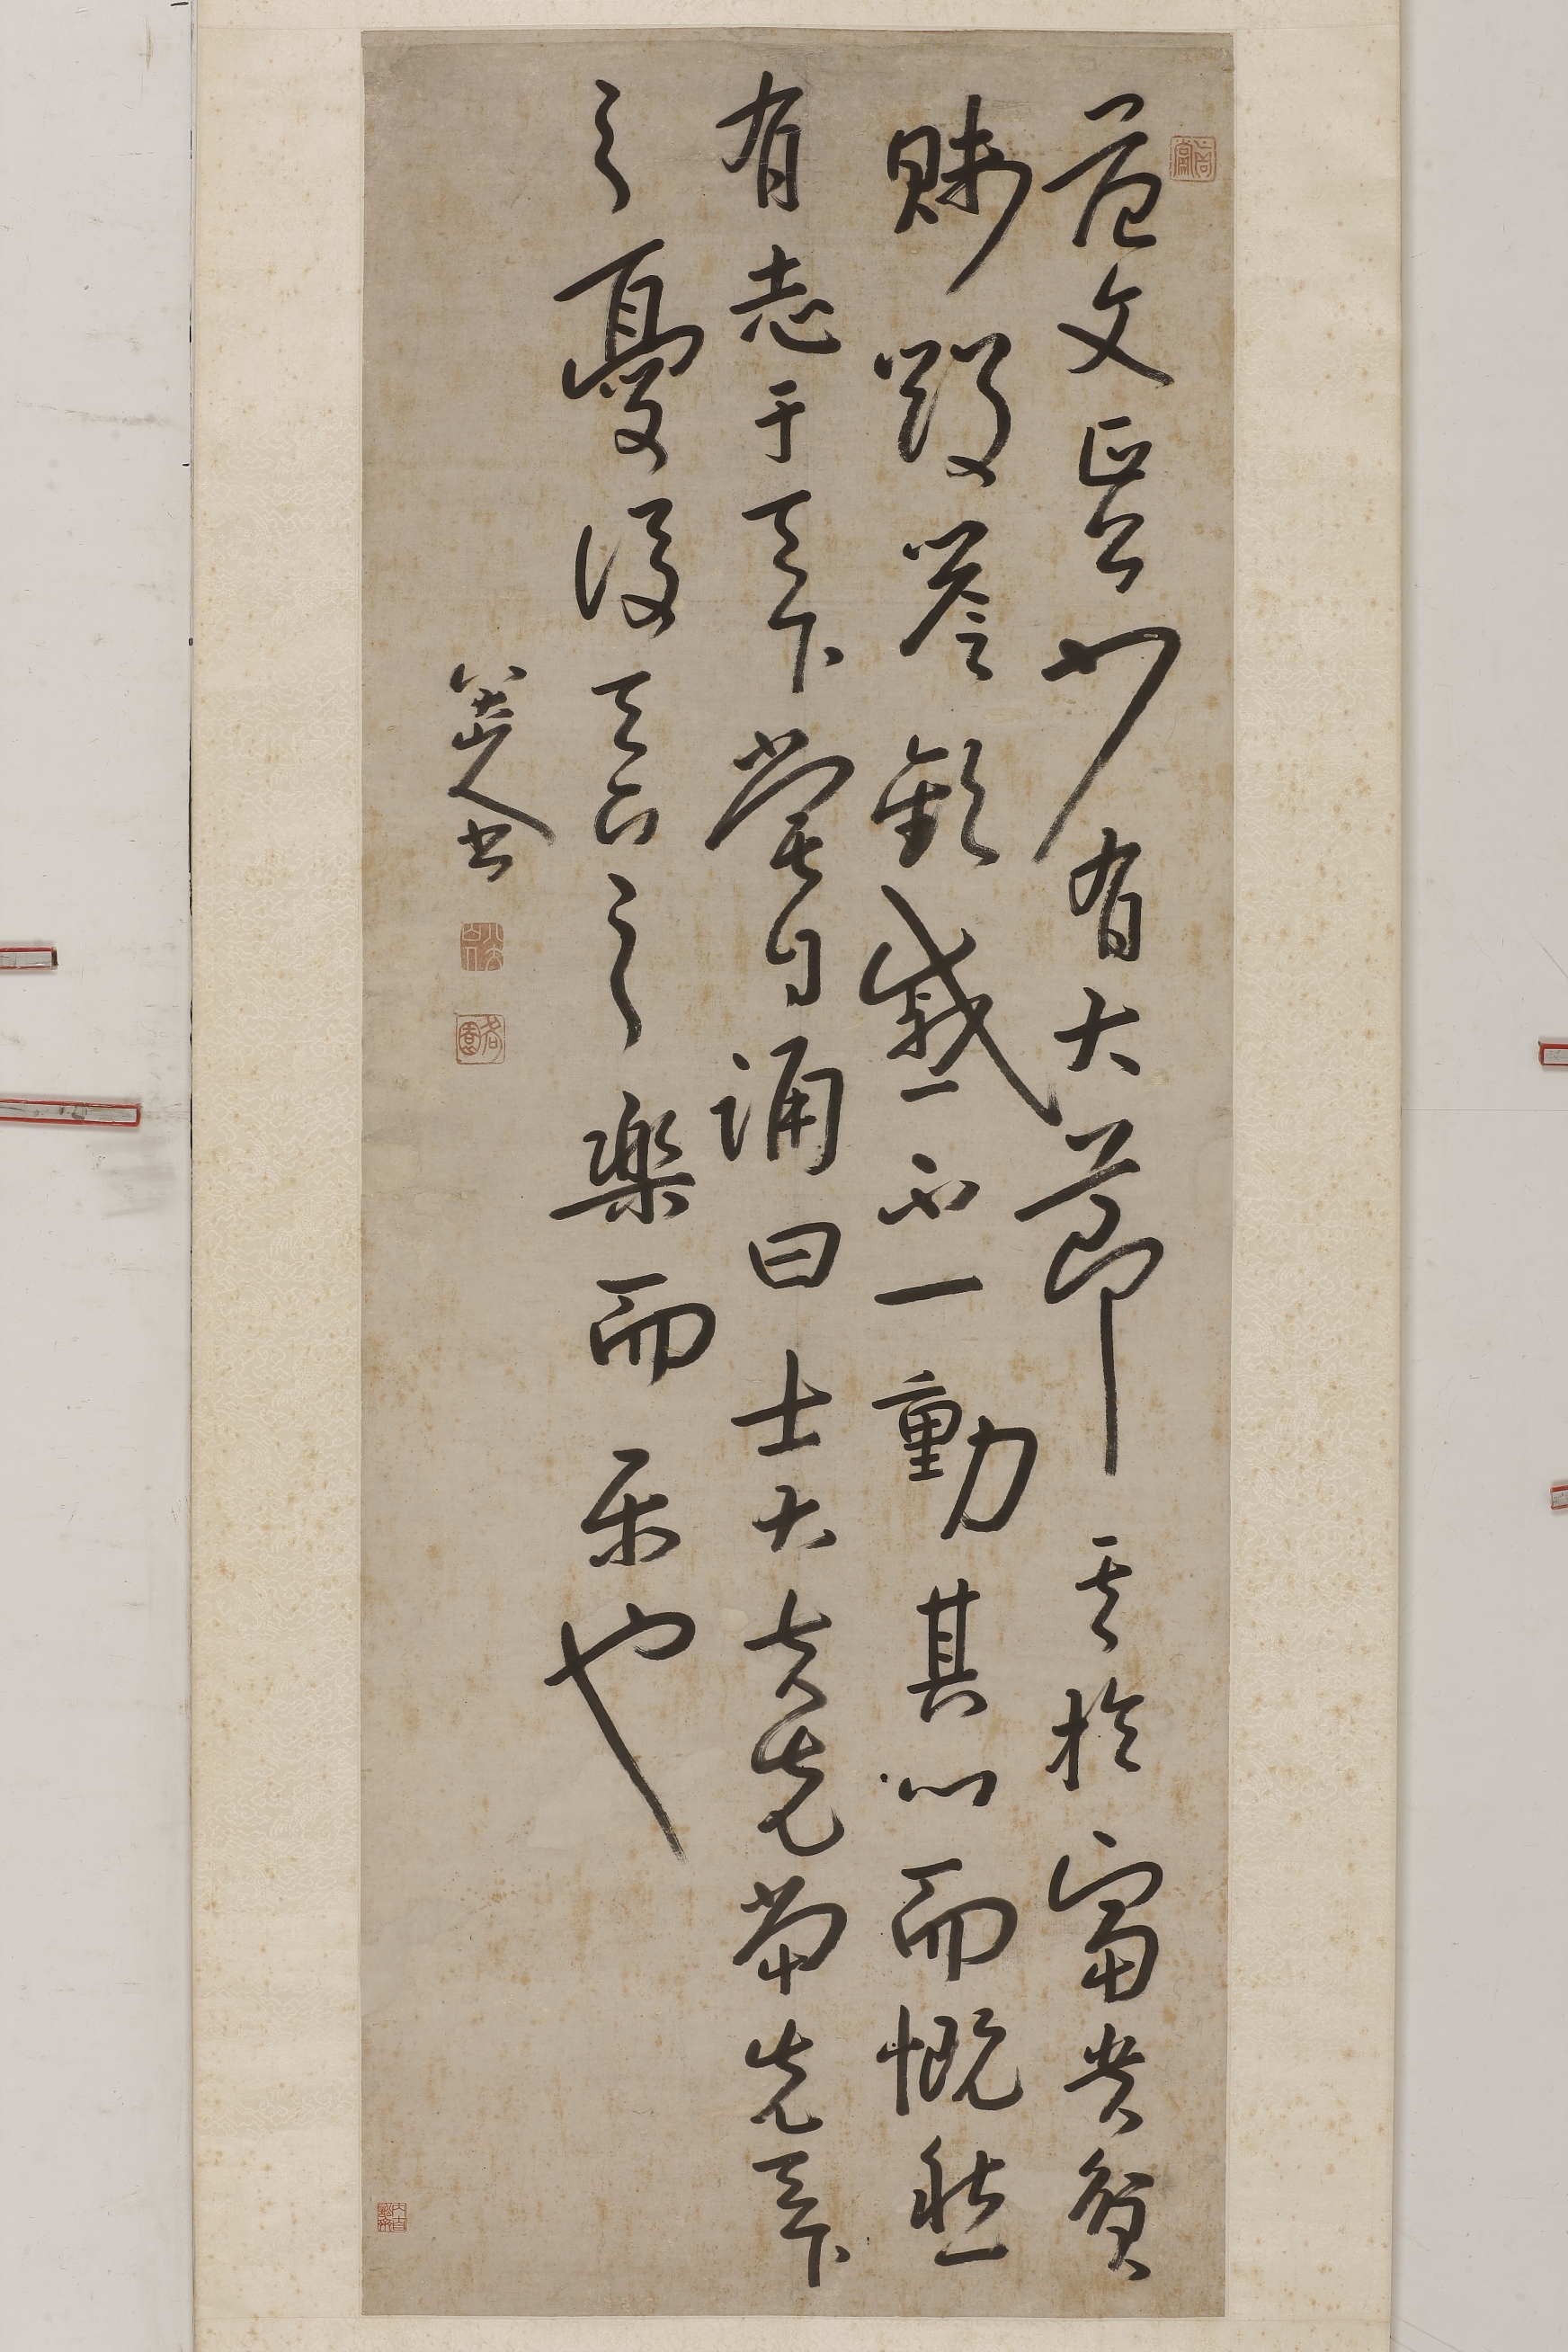 范文正公少有大節其於富貴貧
賤毀譽歡慼不一動其心而慨然
有志于天下嘗自誦曰士大夫先當先天下
之憂後天下之樂而樂也
八大山人書
八大山人